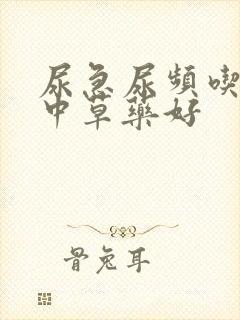 尿急尿頻喫
中草藥好
骨兔耳